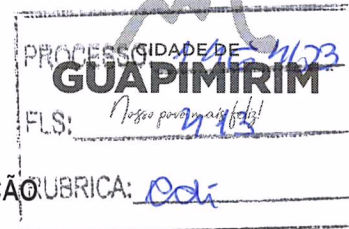 PROCESSO:
CIDADE DE
GUAPIMIRIM
Nosso povo mais feliz!
FLS: 413
ÇÃO RUBRICA: